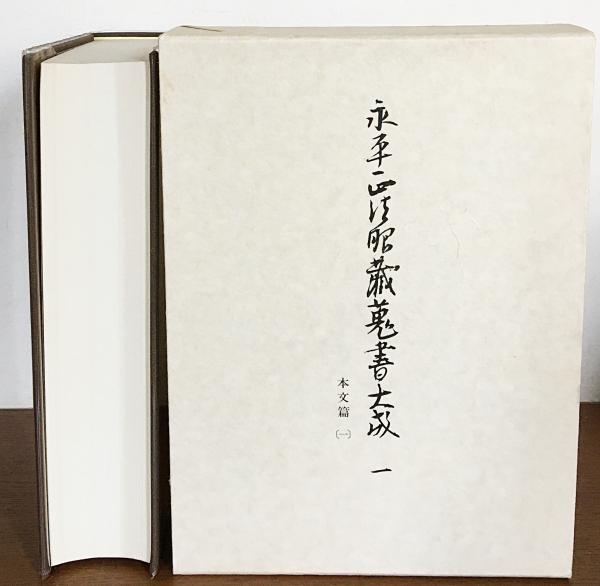 永平正法眼藏蒐書大成 一
本文篇〔一〕